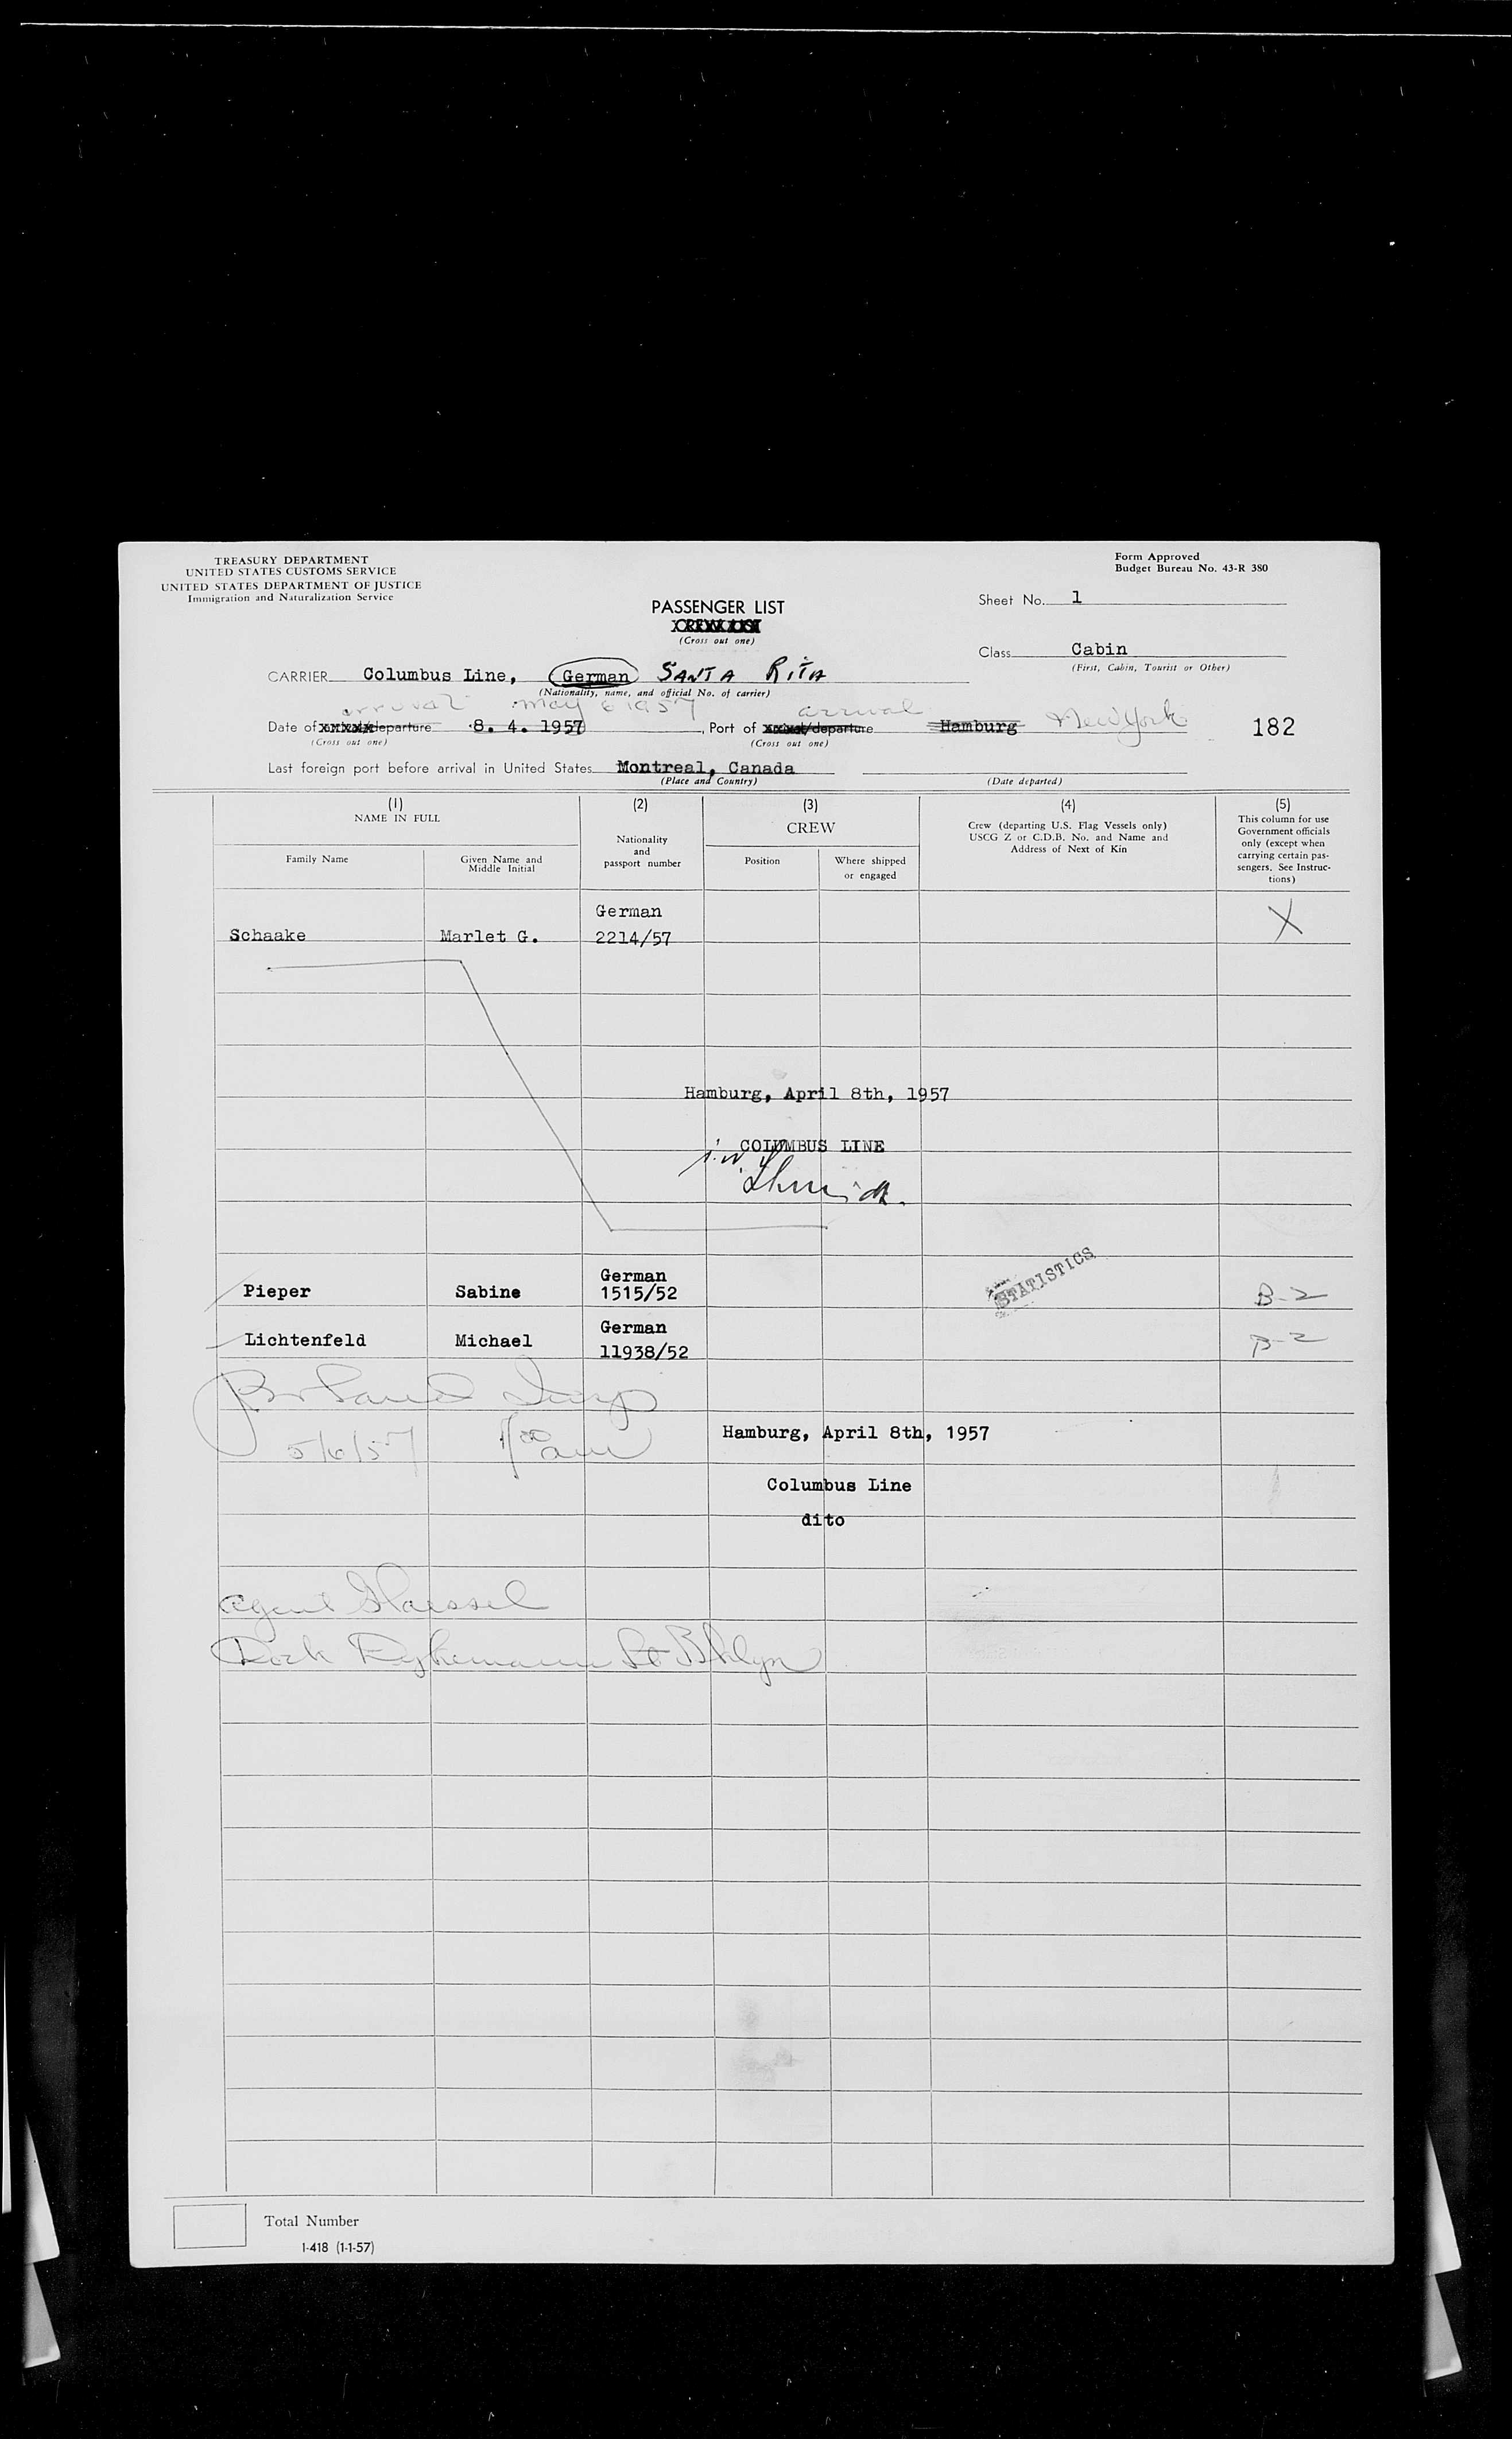 TREASURY DEPARTMENT
UNITED STATES CUSTOMS SERVICE
UNITED STATES DEPARTMENT OF JUSTICE
Immigration and Naturalization Service
Form Approved
Budget Bureau No. 43-R 380
PASSENGER LIST
CREW LIST
(Cross out one)
Sheet No. 1
Class Cabin
(First, Cabin, Tourist or Other)
CARRIER Columbus Line, German SANTA RITA
(Nationality, name, and official No. of carrier)
arrival May 6 1957 arrival
Date of departure 8. 4. 1957, Port of departure Hamburg New York 182
(Cross out one) (Cross out one)
Last foreign port before arrival in United States Montreal, Canada
(Place and Country) (Date departed)
(1) NAME IN FULL
Family Name
Given Name and Middle Initial
(2) Nationality and passport number
(3) CREW
Position
Where shipped or engaged
(4) Crew (departing U.S. Flag Vessels only) USCG Z or C.D.B. No. and Name and Address of Next of Kin
(5) This column for use Government officials only (except when carrying certain passengers. See Instructions)
German
Schaake Marlet G. 2214/57 X
Hamburg, April 8th, 1957
COLUMBUS LINE
STATISTICS
German
Pieper Sabine 1515/52 B-2
German
Lichtenfeld Michael 11938/52 B-2
5/6/57 am
Hamburg, April 8th, 1957
Columbus Line
dito
agent
St Bklyn
Total Number
I-418 (1-1-57)